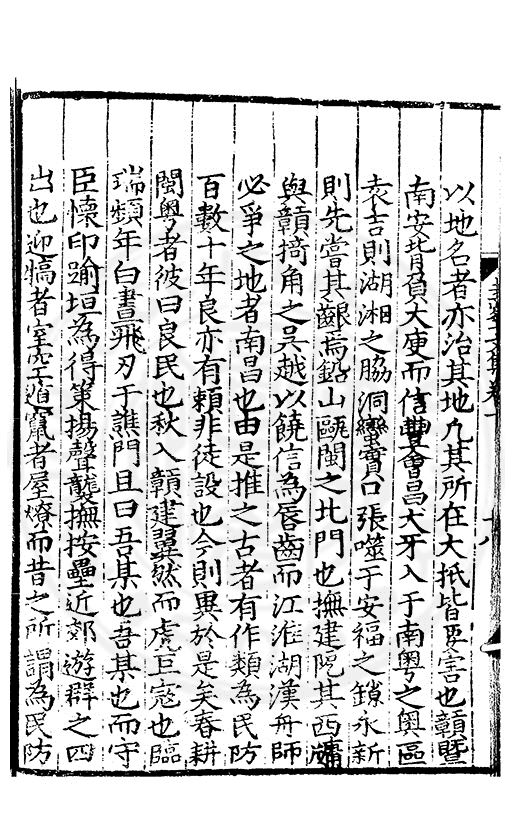 以地名者亦治其地凡其所在大抵皆要害也贛暨
南安背負大庾而信豐會昌犬牙入于南粵之奧區
袁吉則湖湘之脇洞蠻竇口張噬于安福之鎖永新
則先嘗其齦焉鉛山甌閩之北門也撫建阨其西牖
與贛掎角之吴越以饒信為唇齒而江淮湖漢舟師
必爭之地者南昌也由是推之古者有作類為民防
百數十年良亦有頼非徒設也今則異於是矣春耕
閩粵者彼曰良民也秋入贛建翼然而虎巨寇也臨
瑞頻年白晝飛刃于譙門且曰吾某也吾某也而守
臣懷印踰垣為得策揚聲襲撫按壘近郊遊群之四
出也迎犒者室空遁竄者屋燎而昔之所謂為民防